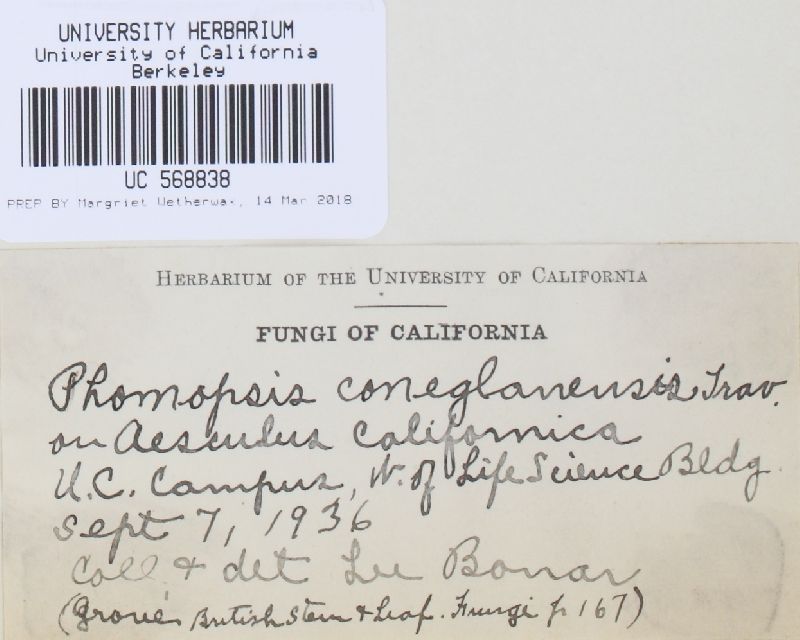 UNIVERSITY HERBARIUM
University of California
Berkeley
UC 568838
PREP BY Margriet Wetherwax, 14 Mar 2018
HERBARIUM OF THE UNIVERSITY OF CALIFORNIA
FUNGI OF CALIFORNIA
Phomopsis coneglanensis Trav.
on Aesculus californica
U.C. Campus, W. of Life Science Bldg.
Sept 7, 1936
Coll & det Lee Bonar
(Grove's British Stem & Leaf. Fungi p 167)